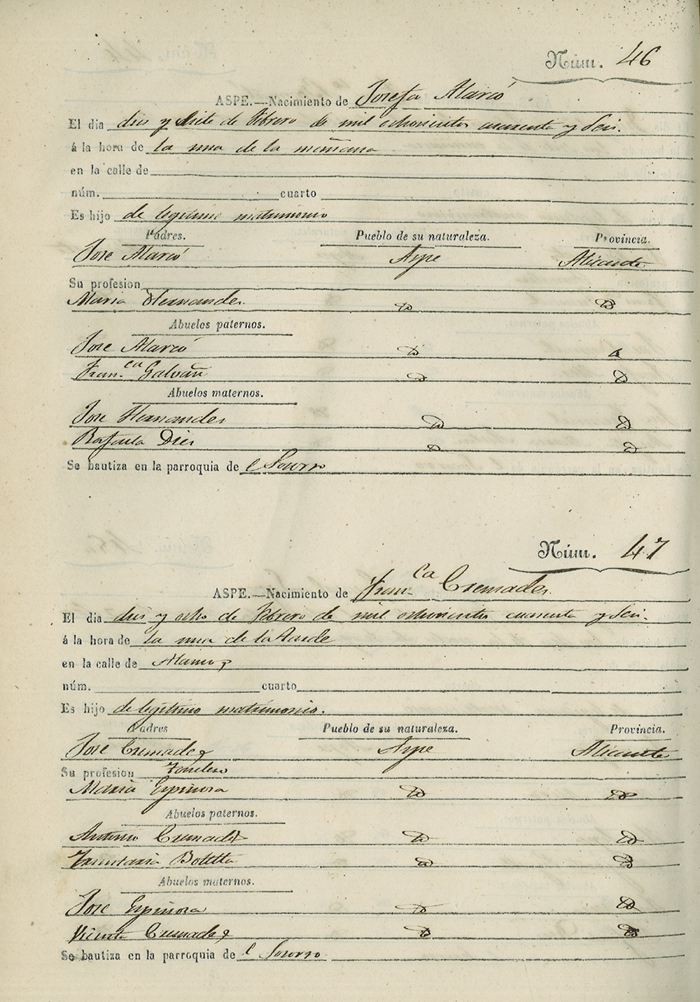 Núm. 46
ASPE.—Nacimiento de Josefa Alarcó
El dia diez y siete de Febrero de mil ochocientos cuarenta y Seis.
á la hora de la una de la mañana
en la calle de
núm. cuarto
Es hijo de legitimo matrimonio
Padres. Pueblo de su naturaleza. Provincia.
Jose Alarcó Aspe Alicante
Su profesion
Maria Hernandes
Abuelos paternos.
Jose Alarcó
Fran.ca Galvañ
Abuelos maternos.
Jose Hernandes
Rafaela Dies
Se bautiza en la parroquia de l Socorro
Núm. 47
ASPE.—Nacimiento de Fran.ca Cremades
El dia diez y ocho de Febrero de mil ochocientos cuarenta y seis.
á la hora de la una de la tarde
en la calle de
núm. cuarto
Es hijo de legitimo matrimonio.
Padres Pueblo de su naturaleza. Provincia.
Jose Cremades Aspe Alicante
Su profesion
Maria Espinosa
Abuelos paternos.
Antonio Cremades
Abuelos maternos.
Jose Espinosa
Vicenta Cremades
Se bautiza en la parroquia de l Socorro